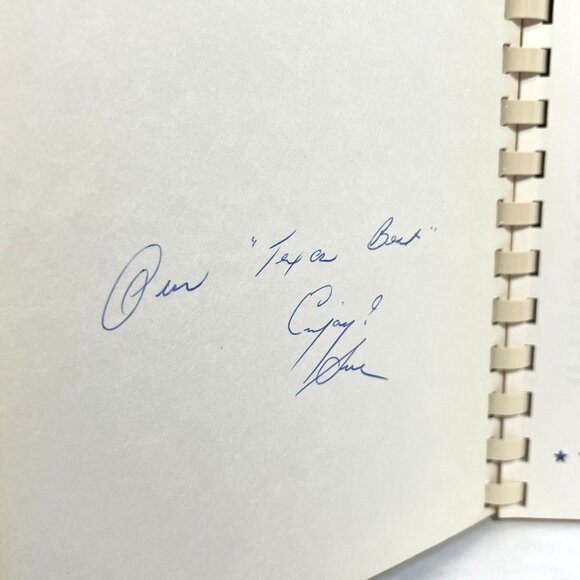 Our "Texas Best"
Enjoy!
Sue